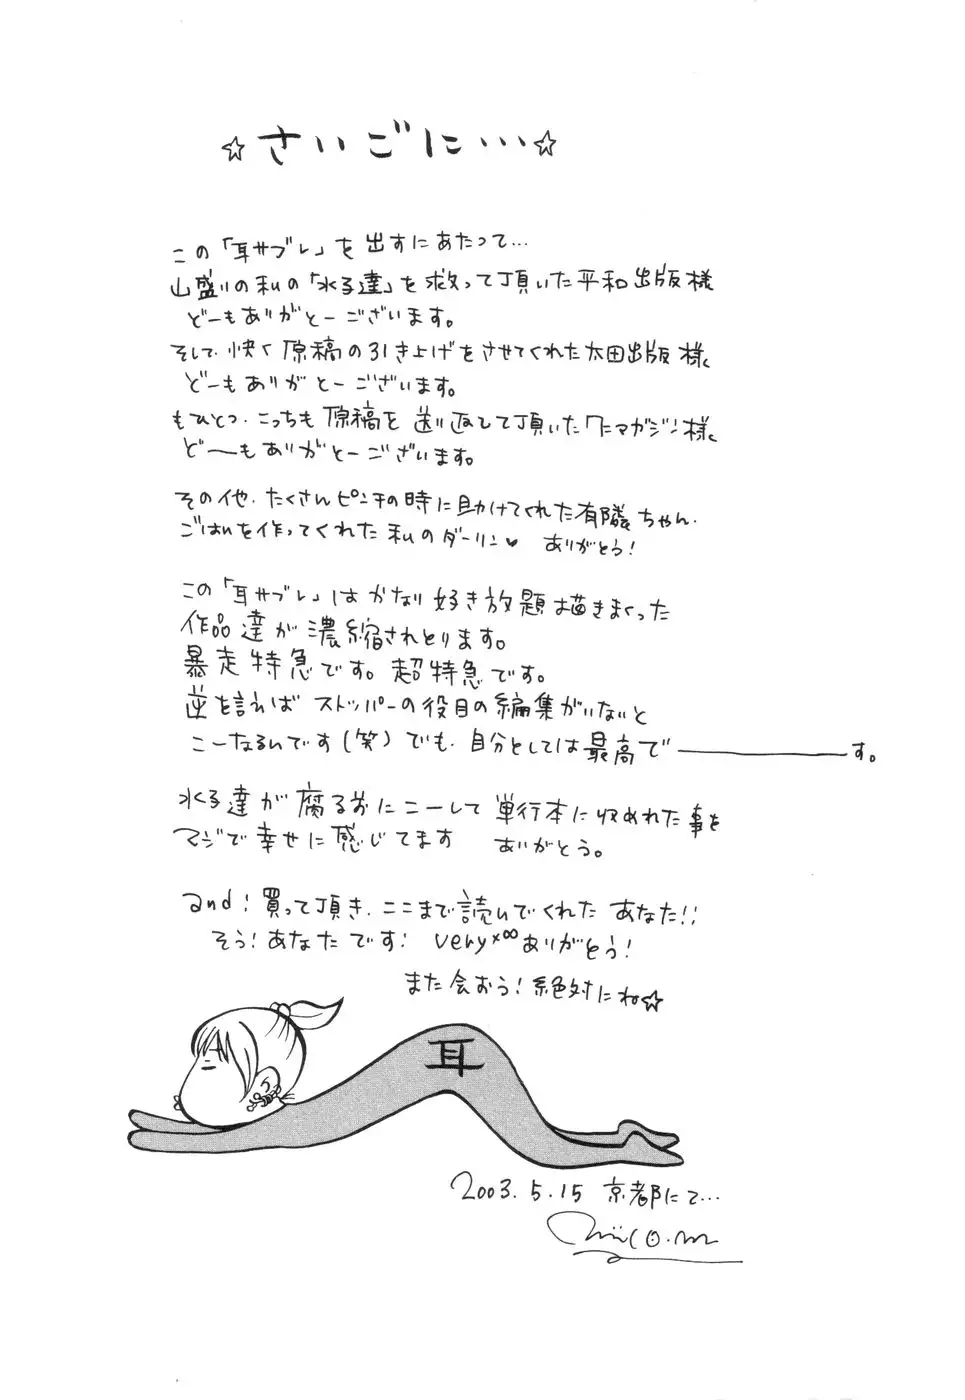 ☆さいごに…☆
この「耳サブレ」を出すにあたって…
山盛りの私の「水子達」を救って頂いた平和出版様
どーもありがとーございます。
そして、快く原稿の引き上げをさせてくれた太田出版様、
どーもありがとーございます。
もひとつ、こっちも原稿を送り返して頂いた
マガジン様、
ど──もありがとーございます。
その他、たくさんピンチの時に助けてくれた有隣ちゃん、
ごはんを作ってくれた私のダーリン♥ ありがとう!
この「耳サブレ」はかなり好き放題描きまくった
作品達が濃縮されとります。
暴走特急です。超特急です。
逆を言えばストッパーの役目の編集がいないと
こーなるんです(笑)でも、自分としては最高で──────す。
水子達が腐る前にこーして単行本に収めれた事を
マジで幸せに感じてます ありがとう。
and!買って頂き、ここまで読んでくれたあなた!!
そう!あなたです! very×∞ありがとう!
また会おう!絶対にね☆
耳
2003.5.15 京都にて…